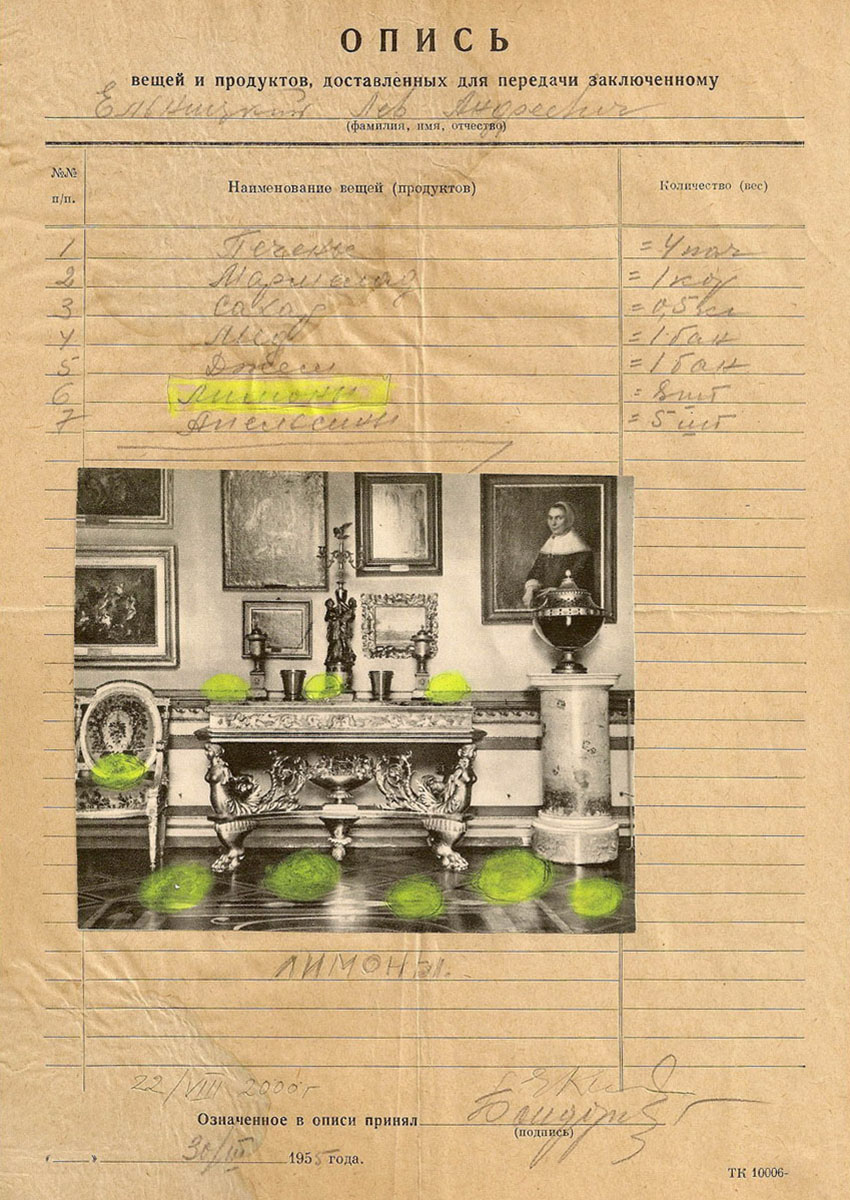 ОПИСЬ
вещей и продуктов, доставленных для передачи заключенному
Ельницкий Лев Андреевич
(фамилия, имя, отчество)
№№ п/п. Наименование вещей (продуктов) Количество (вес)
1 Печенье = 4 пач
2 Мармелад = 1 кг
3 Сахар = 0,5 кг
4 Мед = 1 бан
5 Джем = 1 бан
6 Лимоны = 8 шт
7 Апельсины = 5 шт
ЛИМОНЫ.
22/VIII 2000 г
Означенное в описи принял
(подпись)
« » 30/III 1955 года.
ТК 10006-